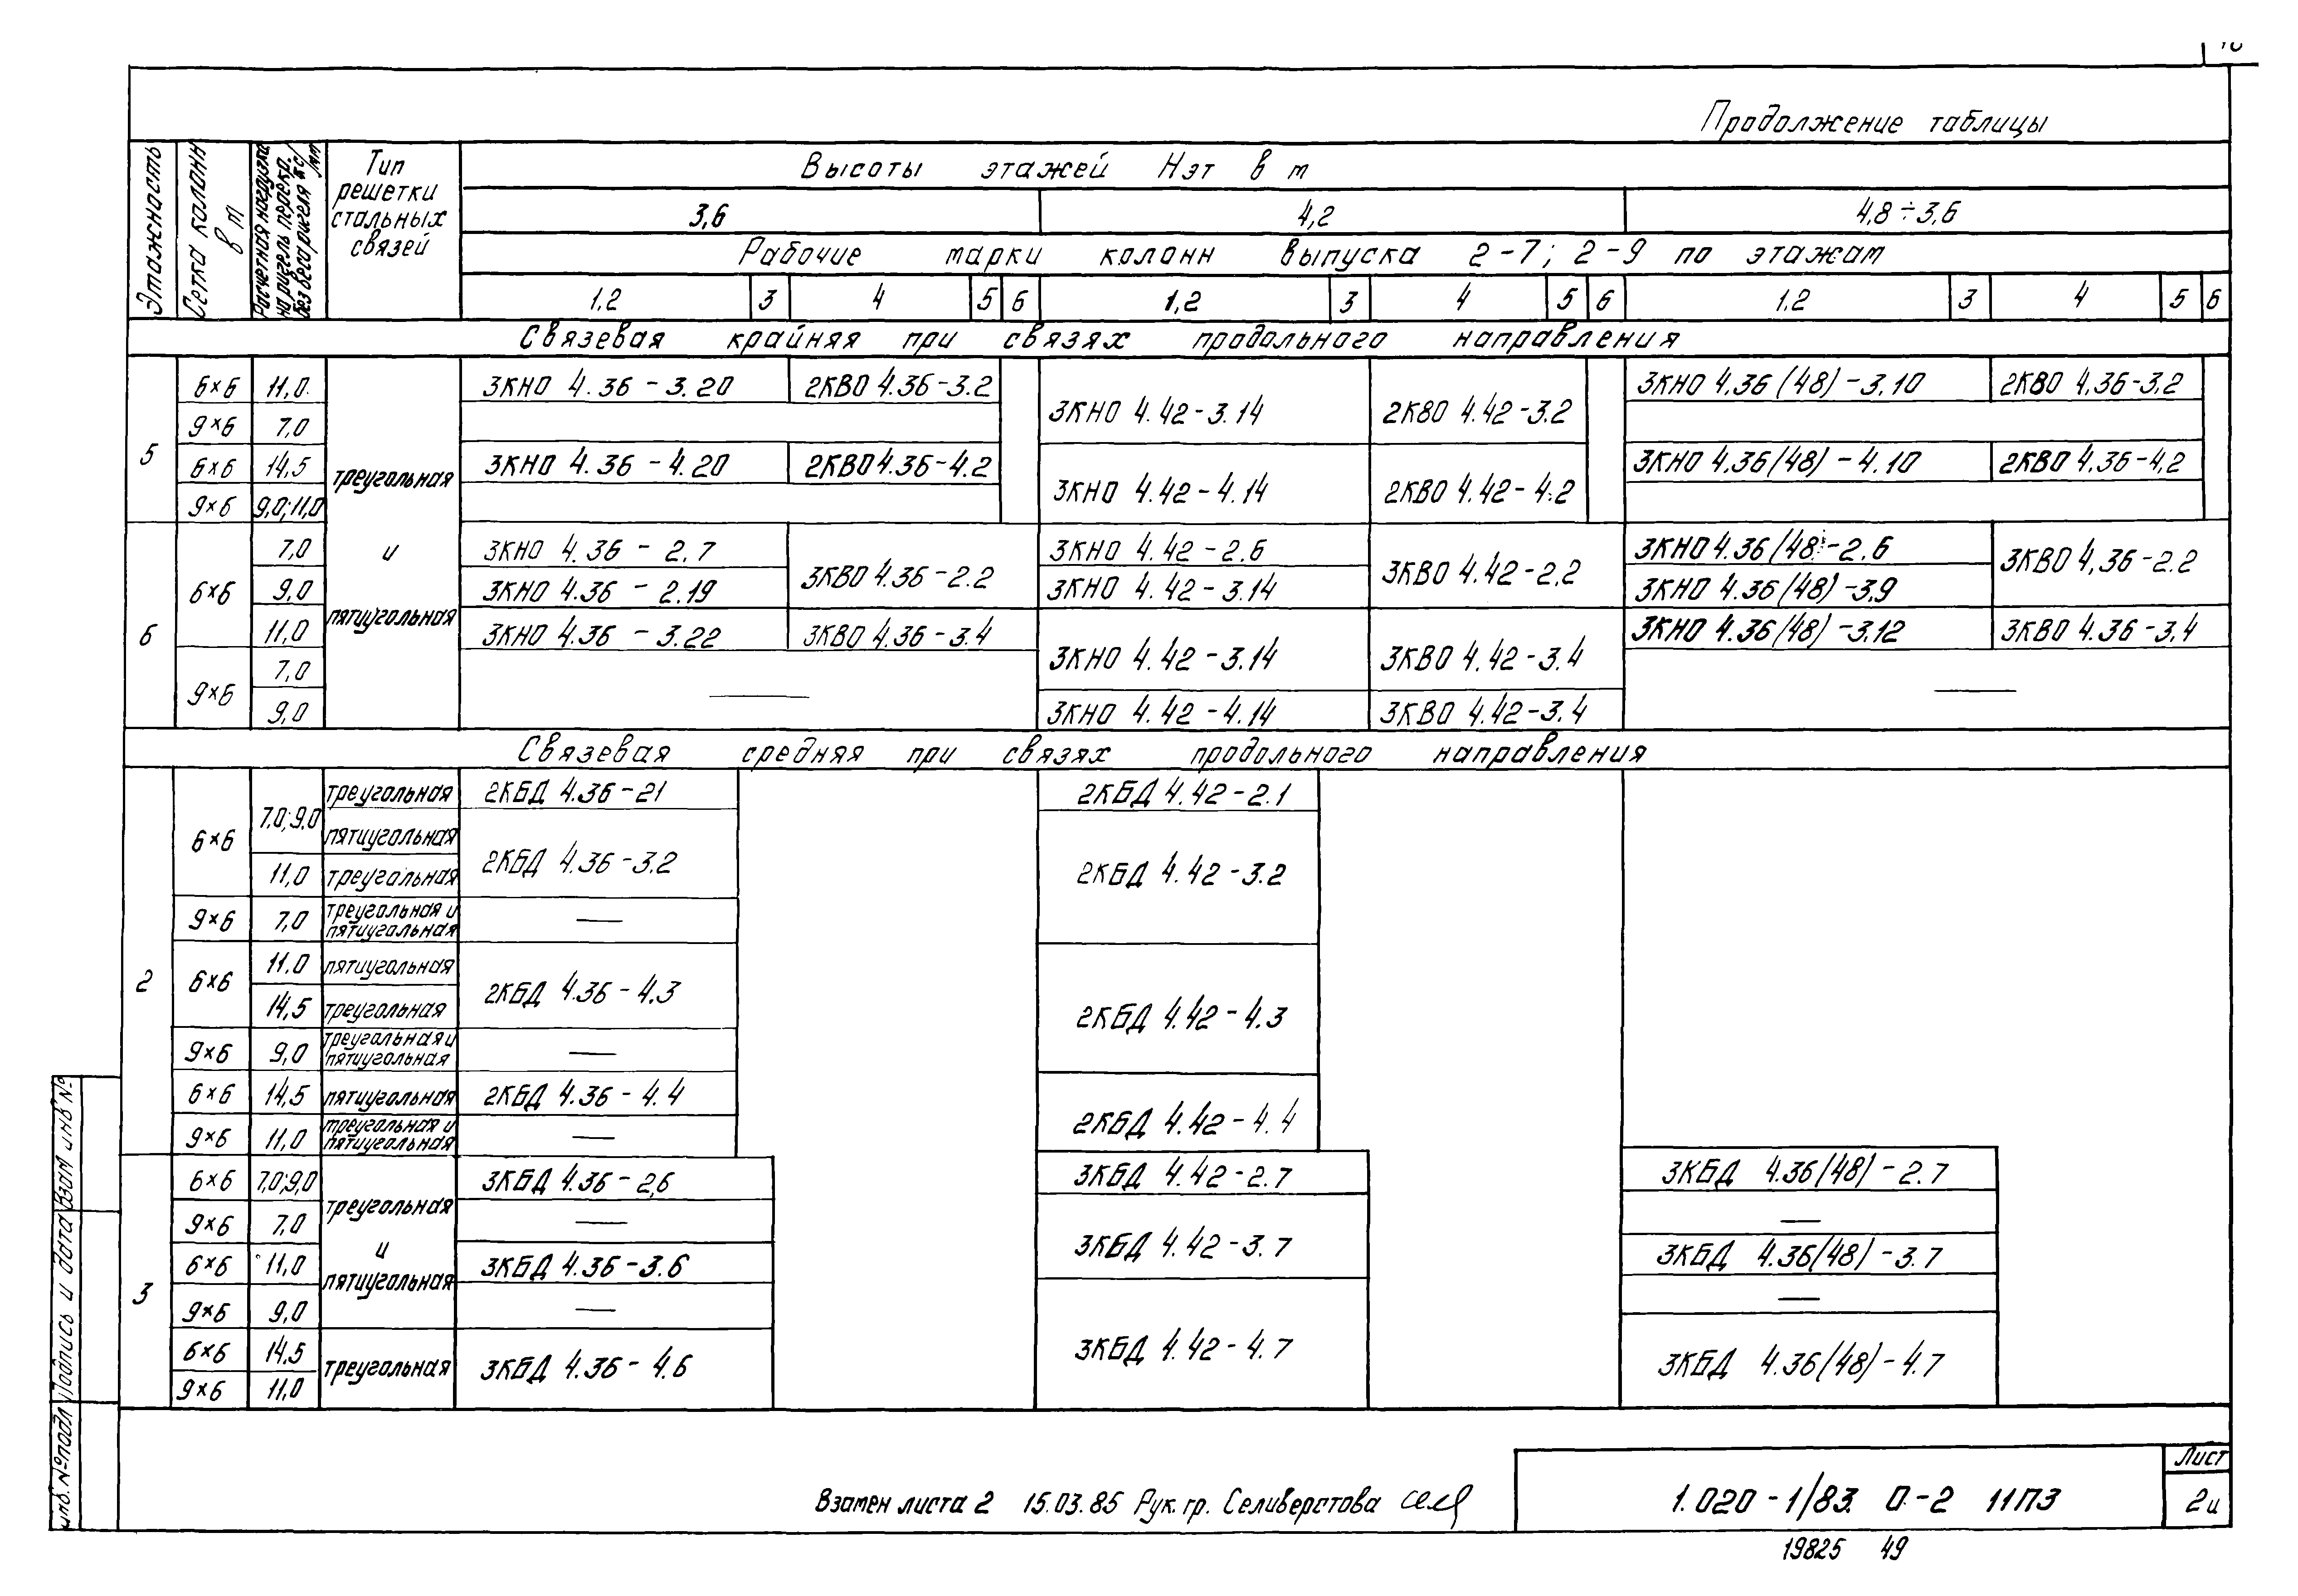 Продолжение таблицы
Этажность
Сетка колонн в м
Расчетная нагрузка на ригель перекр. без веса ригеля тс/мп
Тип решетки стальных связей
Высоты этажей Hэт в м
3,6 4,2 4,8÷3,6
Рабочие марки колонн выпуска 2-7; 2-9 по этажам
1,2 3 4 5 6 1,2 3 4 5 6 1,2 3 4 5 6
Связевая крайняя при связях продольного направления
5
6×6 11,0 3КНО 4.36-3.20 2КВО 4.36-3.2 3КНО 4.36(48)-3.10 2КВО 4.36-3,2
9×6 7,0 3КНО 4.42-3.14 2КВО 4.42-3.2
6×6 14,5 треугольная 3КНО 4.36-4.20 2КВО 4.36-4.2 3КНО 4.36(48)-4.10 2КВО 4.36-4,2
9×6 9,0;11,0 3КНО 4.42-4.14 2КВО 4.42-4.2
6
6×6 7,0 и 3КНО 4.36-2.7 3КВО 4.36-2.2 3КНО 4.42-2.6 3КВО 4.42-2.2 3КНО 4.36(48)-2.6 3КВО 4,36-2.2
9,0 3КНО 4.36-2.19 3КНО 4.42-3.14 3КНО 4.36(48)-3,9
11,0 пятиугольная 3КНО 4.36-3.22 3КВО 4.36-3.4 3КНО 4.36(48)-3.12 3КВО 4.36-3,4
9×6 7,0 — 3КНО 4.42-3.14 3КВО 4.42-3.4 —
9,0 3КНО 4.42-4.14 3КВО 4.42-3.4
Связевая средняя при связях продольного направления
2
6×6 7,0;9,0 треугольная 2КБД 4.36-21 2КБД 4.42-2.1
пятиугольная 2КБД 4.36-3.2 2КБД 4.42-3.2
11,0 треугольная
9×6 7,0 треугольная и пятиугольная —
6×6 11,0 пятиугольная 2КБД 4.36-4.3 2КБД 4.42-4.3
14,5 треугольная
9×6 9,0 треугольная и пятиугольная —
6×6 14,5 пятиугольная 2КБД 4.36-4.4 2КБД 4.42-4.4
9×6 11,0 треугольная и пятиугольная —
3
6×6 7,0;9,0 треугольная и пятиугольная 3КБД 4.36-2,6 3КБД 4.42-2.7 3КБД 4.36(48)-2.7
9×6 7,0 — 3КБД 4.42-3.7 —
6×6 11,0 3КБД 4.36-3.6 3КБД 4.36(48)-3.7
9×6 9,0 — 3КБД 4.42-4.7 —
6×6 14,5 треугольная 3КБД 4.36-4.6 3КБД 4.36(48)-4.7
9×6 11,0
Взам инв №
Подпись и дата
инв. № подл
Взамен листа 2 15.03.85 Рук. гр. Селиверстова
1.020-1/83. 0-2 11ПЗ
Лист
2и
19825 49